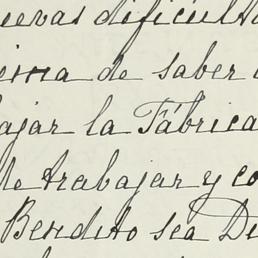 uevas dificulta
de saber
ajar la Fábrica
de trabajar y co
Bendito sea Di